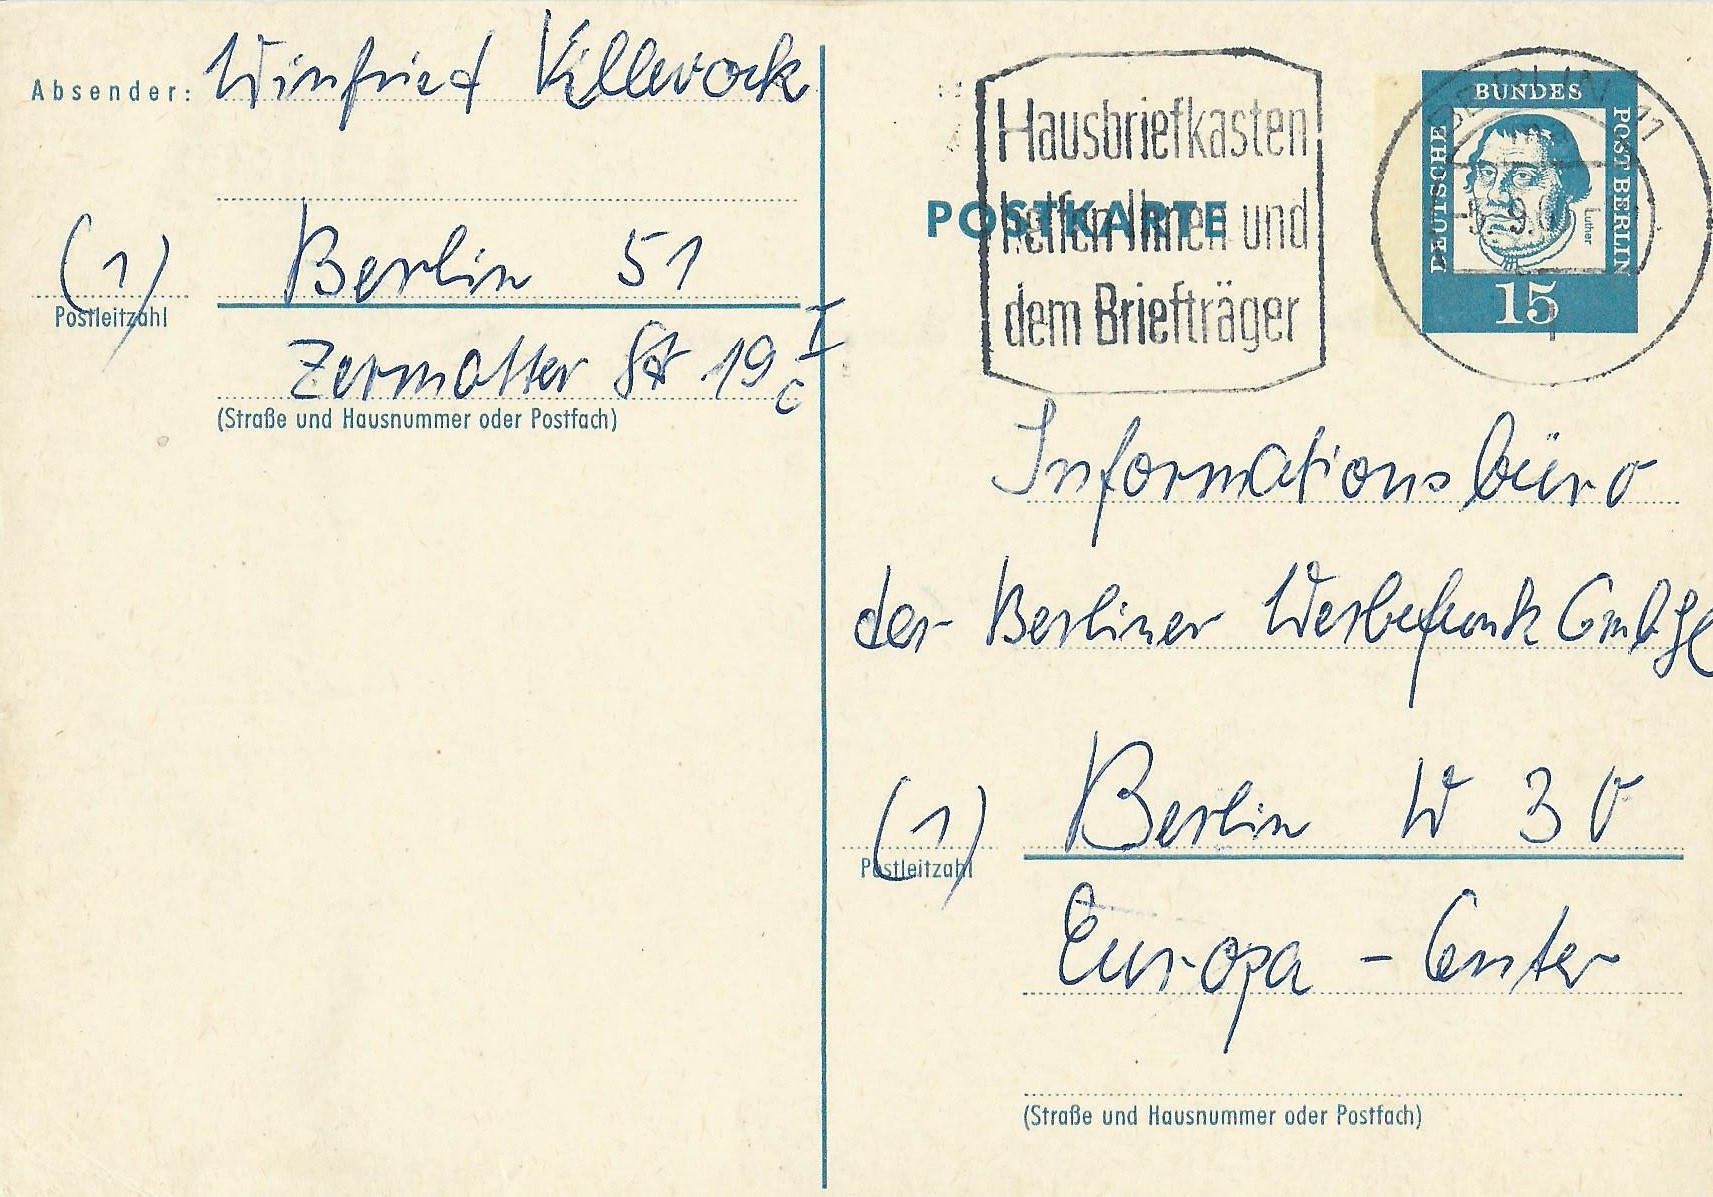 Absender: Winfried Killevock
(1) Berlin 51
Postleitzahl
Zermatter Str 19 c I
(Straße und Hausnummer oder Postfach)
Hausbriefkasten
helfen Ihnen und
dem Briefträger
POSTKARTE
BERLIN 11
-5. 9.
DEUTSCHE
BUNDES
POST BERLIN
Luther
15
Informationsbüro
der Berliner Werbefunk GmbH
(1) Berlin W 30
Postleitzahl
Europa - Center
(Straße und Hausnummer oder Postfach)